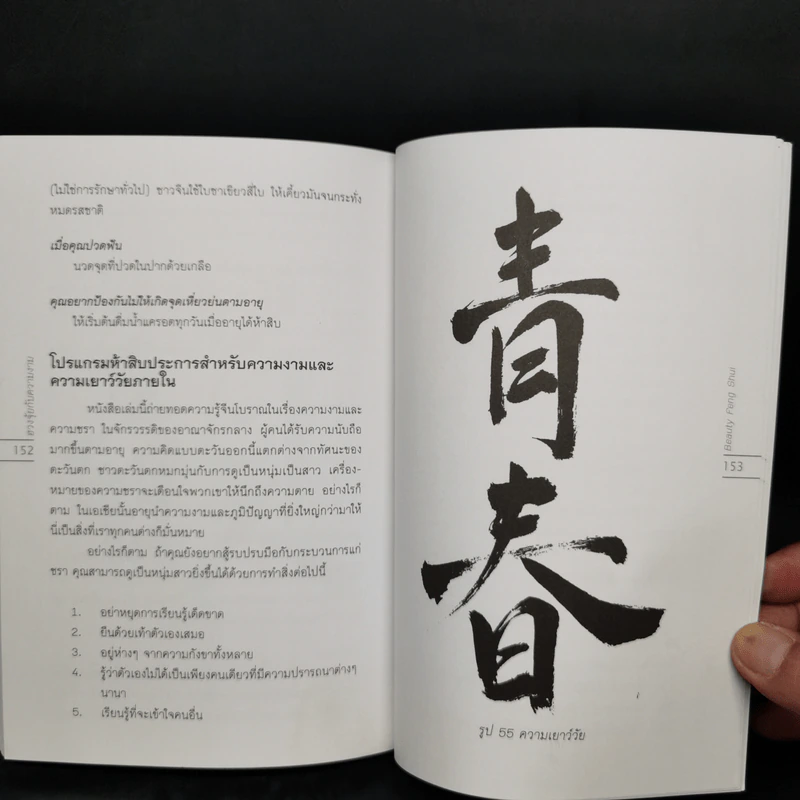 (ไม่ใช่การรักษาทั่วไป) ชาวจีนใช้ใบชาเขียวสี่ใบ ให้เคี้ยวมันจนกระทั่ง
หมดรสชาติ
เมื่อคุณปวดฟัน
นวดจุดที่ปวดในปากด้วยเกลือ
คุณอยากป้องกันไม่ให้เกิดจุดเหี่ยวย่นตามอายุ
ให้เริ่มต้นดื่มน้ำแครอตทุกวันเมื่ออายุได้ห้าสิบ
โปรแกรมห้าสิบประการสำหรับความงามและ
ความเยาว์วัยภายใน
หนังสือเล่มนี้ถ่ายทอดความรู้จีนโบราณในเรื่องความงามและ
ความชรา ในจักรวรรดิของอาณาจักรกลาง ผู้คนได้รับความนับถือ
มากขึ้นตามอายุ ความคิดแบบตะวันออกนี้แตกต่างจากทัศนะของ
ตะวันตก ชาวตะวันตกหมกมุ่นกับการดูเป็นหนุ่มเป็นสาว เครื่อง-
หมายของความชราจะเตือนใจพวกเขาให้นึกถึงความตาย อย่างไรก็
ตาม ในเอเชียนั้นอายุนำความงามและภูมิปัญญาที่ยิ่งใหญ่กว่ามาให้
นี่เป็นสิ่งที่เราทุกคนต่างก็มั่นหมาย
อย่างไรก็ตาม ถ้าคุณยังอยากสู้รบปรบมือกับกระบวนการแก่
ชรา คุณสามารถดูเป็นหนุ่มสาวยิ่งขึ้นได้ด้วยการทำสิ่งต่อไปนี้
1. อย่าหยุดการเรียนรู้เด็ดขาด
2. ยืนด้วยเท้าตัวเองเสมอ
3. อยู่ห่างๆ จากความกังขาทั้งหลาย
4. รู้ว่าตัวเองไม่ได้เป็นเพียงคนเดียวที่มีความปรารถนาต่างๆ
นานา
5. เรียนรู้ที่จะเข้าใจคนอื่น
ฮวงจุ้ยกับความงาม
152
青春
รูป 55 ความเยาว์วัย
Beauty Feng Shui
153